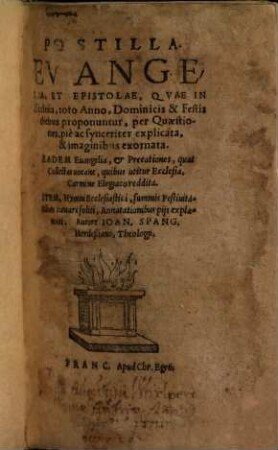 POSTILLA.
EVANGE
LIA, ET EPISTOLAE, QVAE IN
Ecclesia, toto Anno, Dominicis & Festis
diebus proponuntur, per Quæstio-
nes, piè ac synceriter explicata,
& imaginibus exornata.
EADEM Euangelia, & Precationes, quas
Collectas uocant, quibus utitur Ecclesia,
Carmine Elegiaco reddita.
ITEM, Hymni Ecclesiastici, summis Festiuita-
tibus cantari soliti, Annotationibus pijs expla-
nati. Autore IOAN. SPANG.
Herdesiano, Theologo.
FRANC. Apud Chr. Egen.